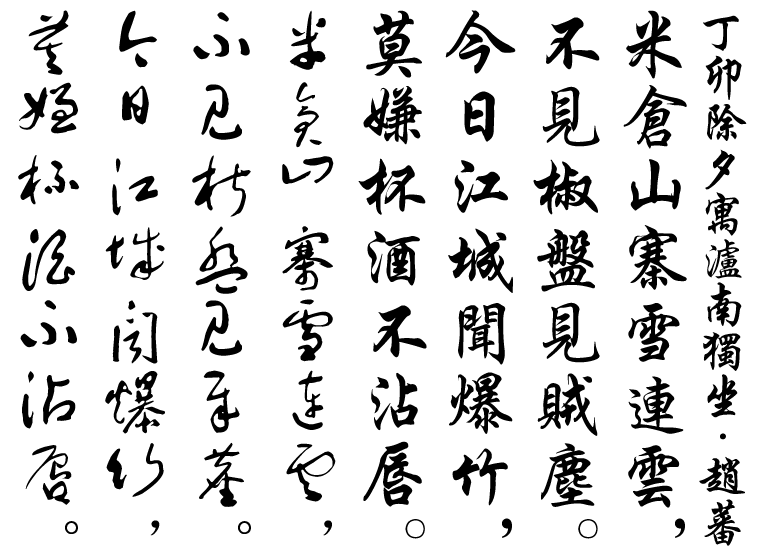 丁卯除夕寓瀘南獨坐·趙蕃
米倉山寨雪連雲，
不見椒盤見賊塵。
今日江城聞爆竹，
莫嫌杯酒不沾唇。
米倉山寨雪連雲，
不見椒盤見賊塵。
今日江城聞爆竹，
莫嫌杯酒不沾唇。